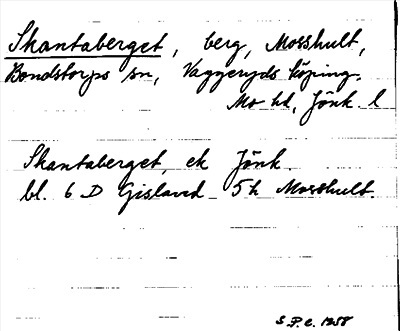 Skantaberget, berg, Mosshult,
Bondstorps sn, Vaggeryds köping.
Mo hd, Jönk. l
Skantaberget, ek Jönk.
bl. 6 D Gislaved 5h Mosshult.
S.P.C. 1958